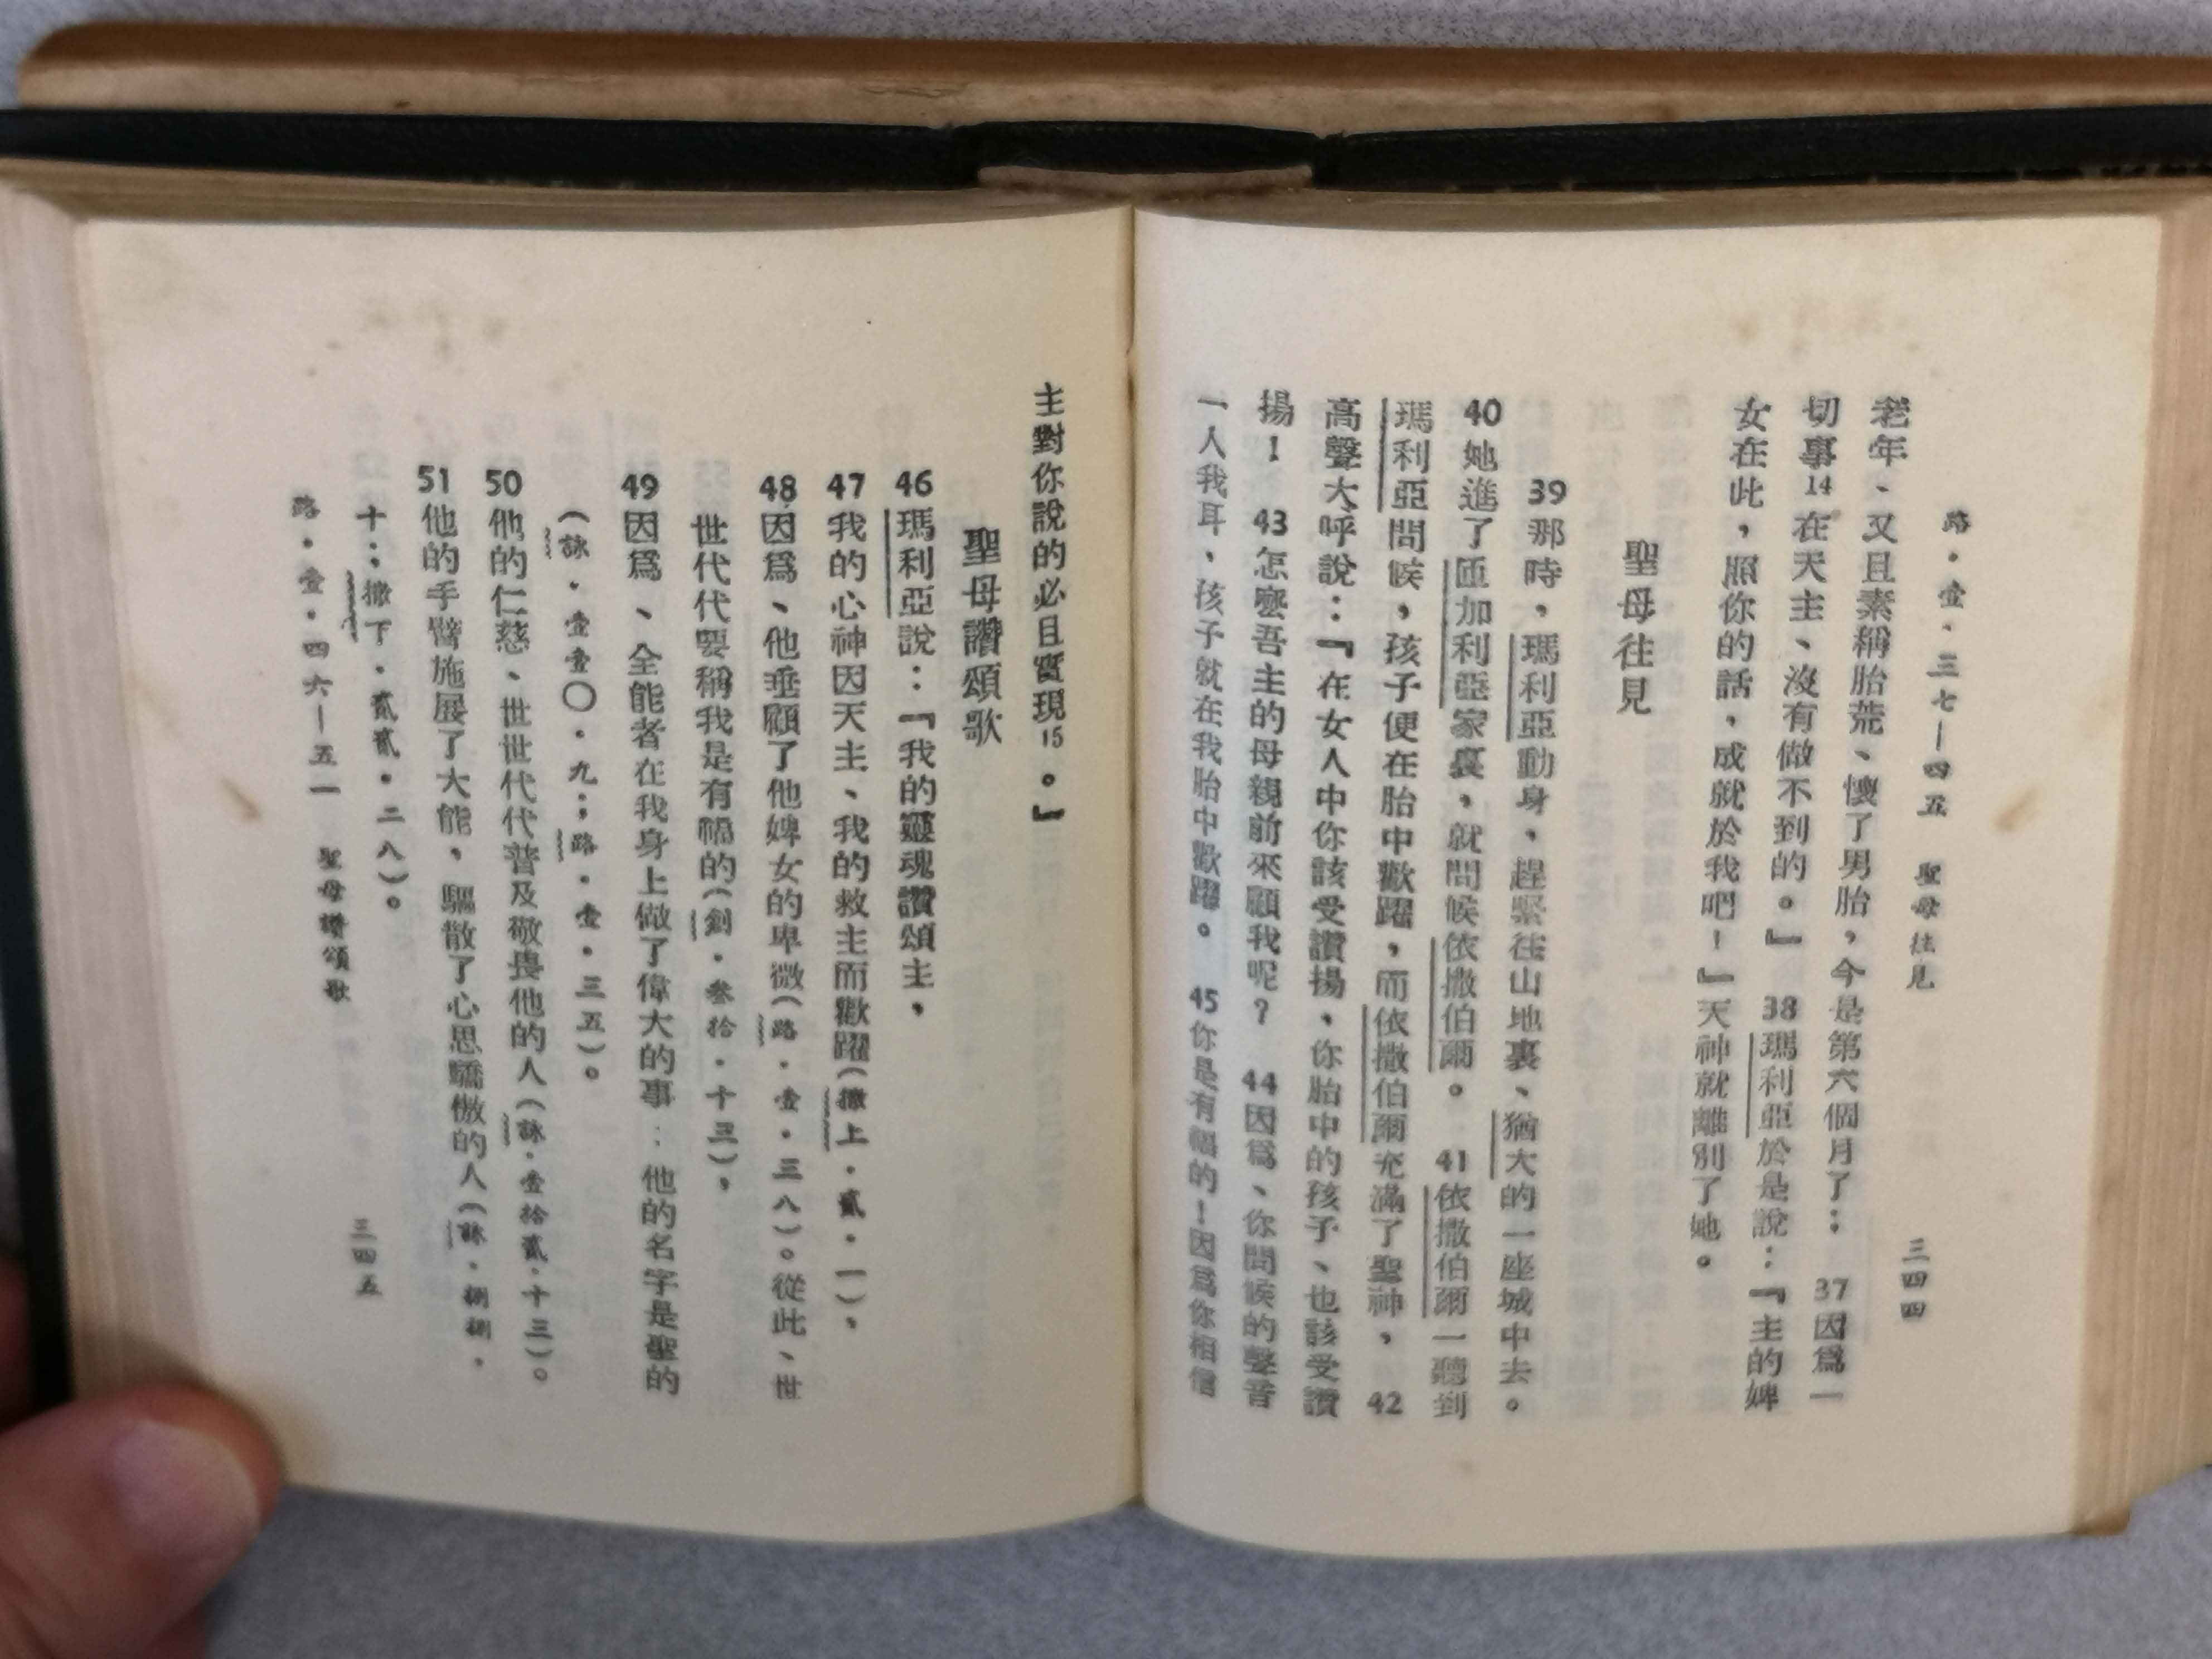 路·壹·三七—四五　聖母往見　三四四
老年、又且素稱胎荒、懷了男胎，今是第六個月了；　37因爲一
切事14在天主、沒有做不到的。』　38瑪利亞於是說：『主的婢
女在此，照你的話，成就於我吧！』天神就離別了她。
聖母往見
39那時，瑪利亞動身，趕緊往山地裏、猶大的一座城中去。
40她進了匝加利亞家裏，就問候依撒伯爾。　41依撒伯爾一聽到
瑪利亞問候，孩子便在胎中歡躍，而依撒伯爾充滿了聖神，　42
高聲大呼說：『在女人中你該受讚揚、你胎中的孩子、也該受讚
揚！　43怎麼吾主的母親前來顧我呢？　44因爲、你問候的聲音
一入我耳、孩子就在我胎中歡躍。　45你是有福的！因爲你相信
主對你說的必且實現15。』
聖母讚頌歌
46瑪利亞說：『我的靈魂讚頌主，
47我的心神因天主、我的救主而歡躍（撒上·貳·一），
48因爲、他垂顧了他婢女的卑微（路·壹·三八）。從此、世
世代代要稱我是有福的（創·叁拾·十三），
49因爲、全能者在我身上做了偉大的事：他的名字是聖的
（詠·壹壹〇·九；路·壹·三五）。
50他的仁慈、世世代代普及敬畏他的人（詠·壹拾貳·十三）。
51他的手臂施展了大能，驅散了心思驕傲的人（詠·捌捌·
十；撒下·貳貳·二八）。
路·壹·四六—五一　聖母讚頌歌　三四五